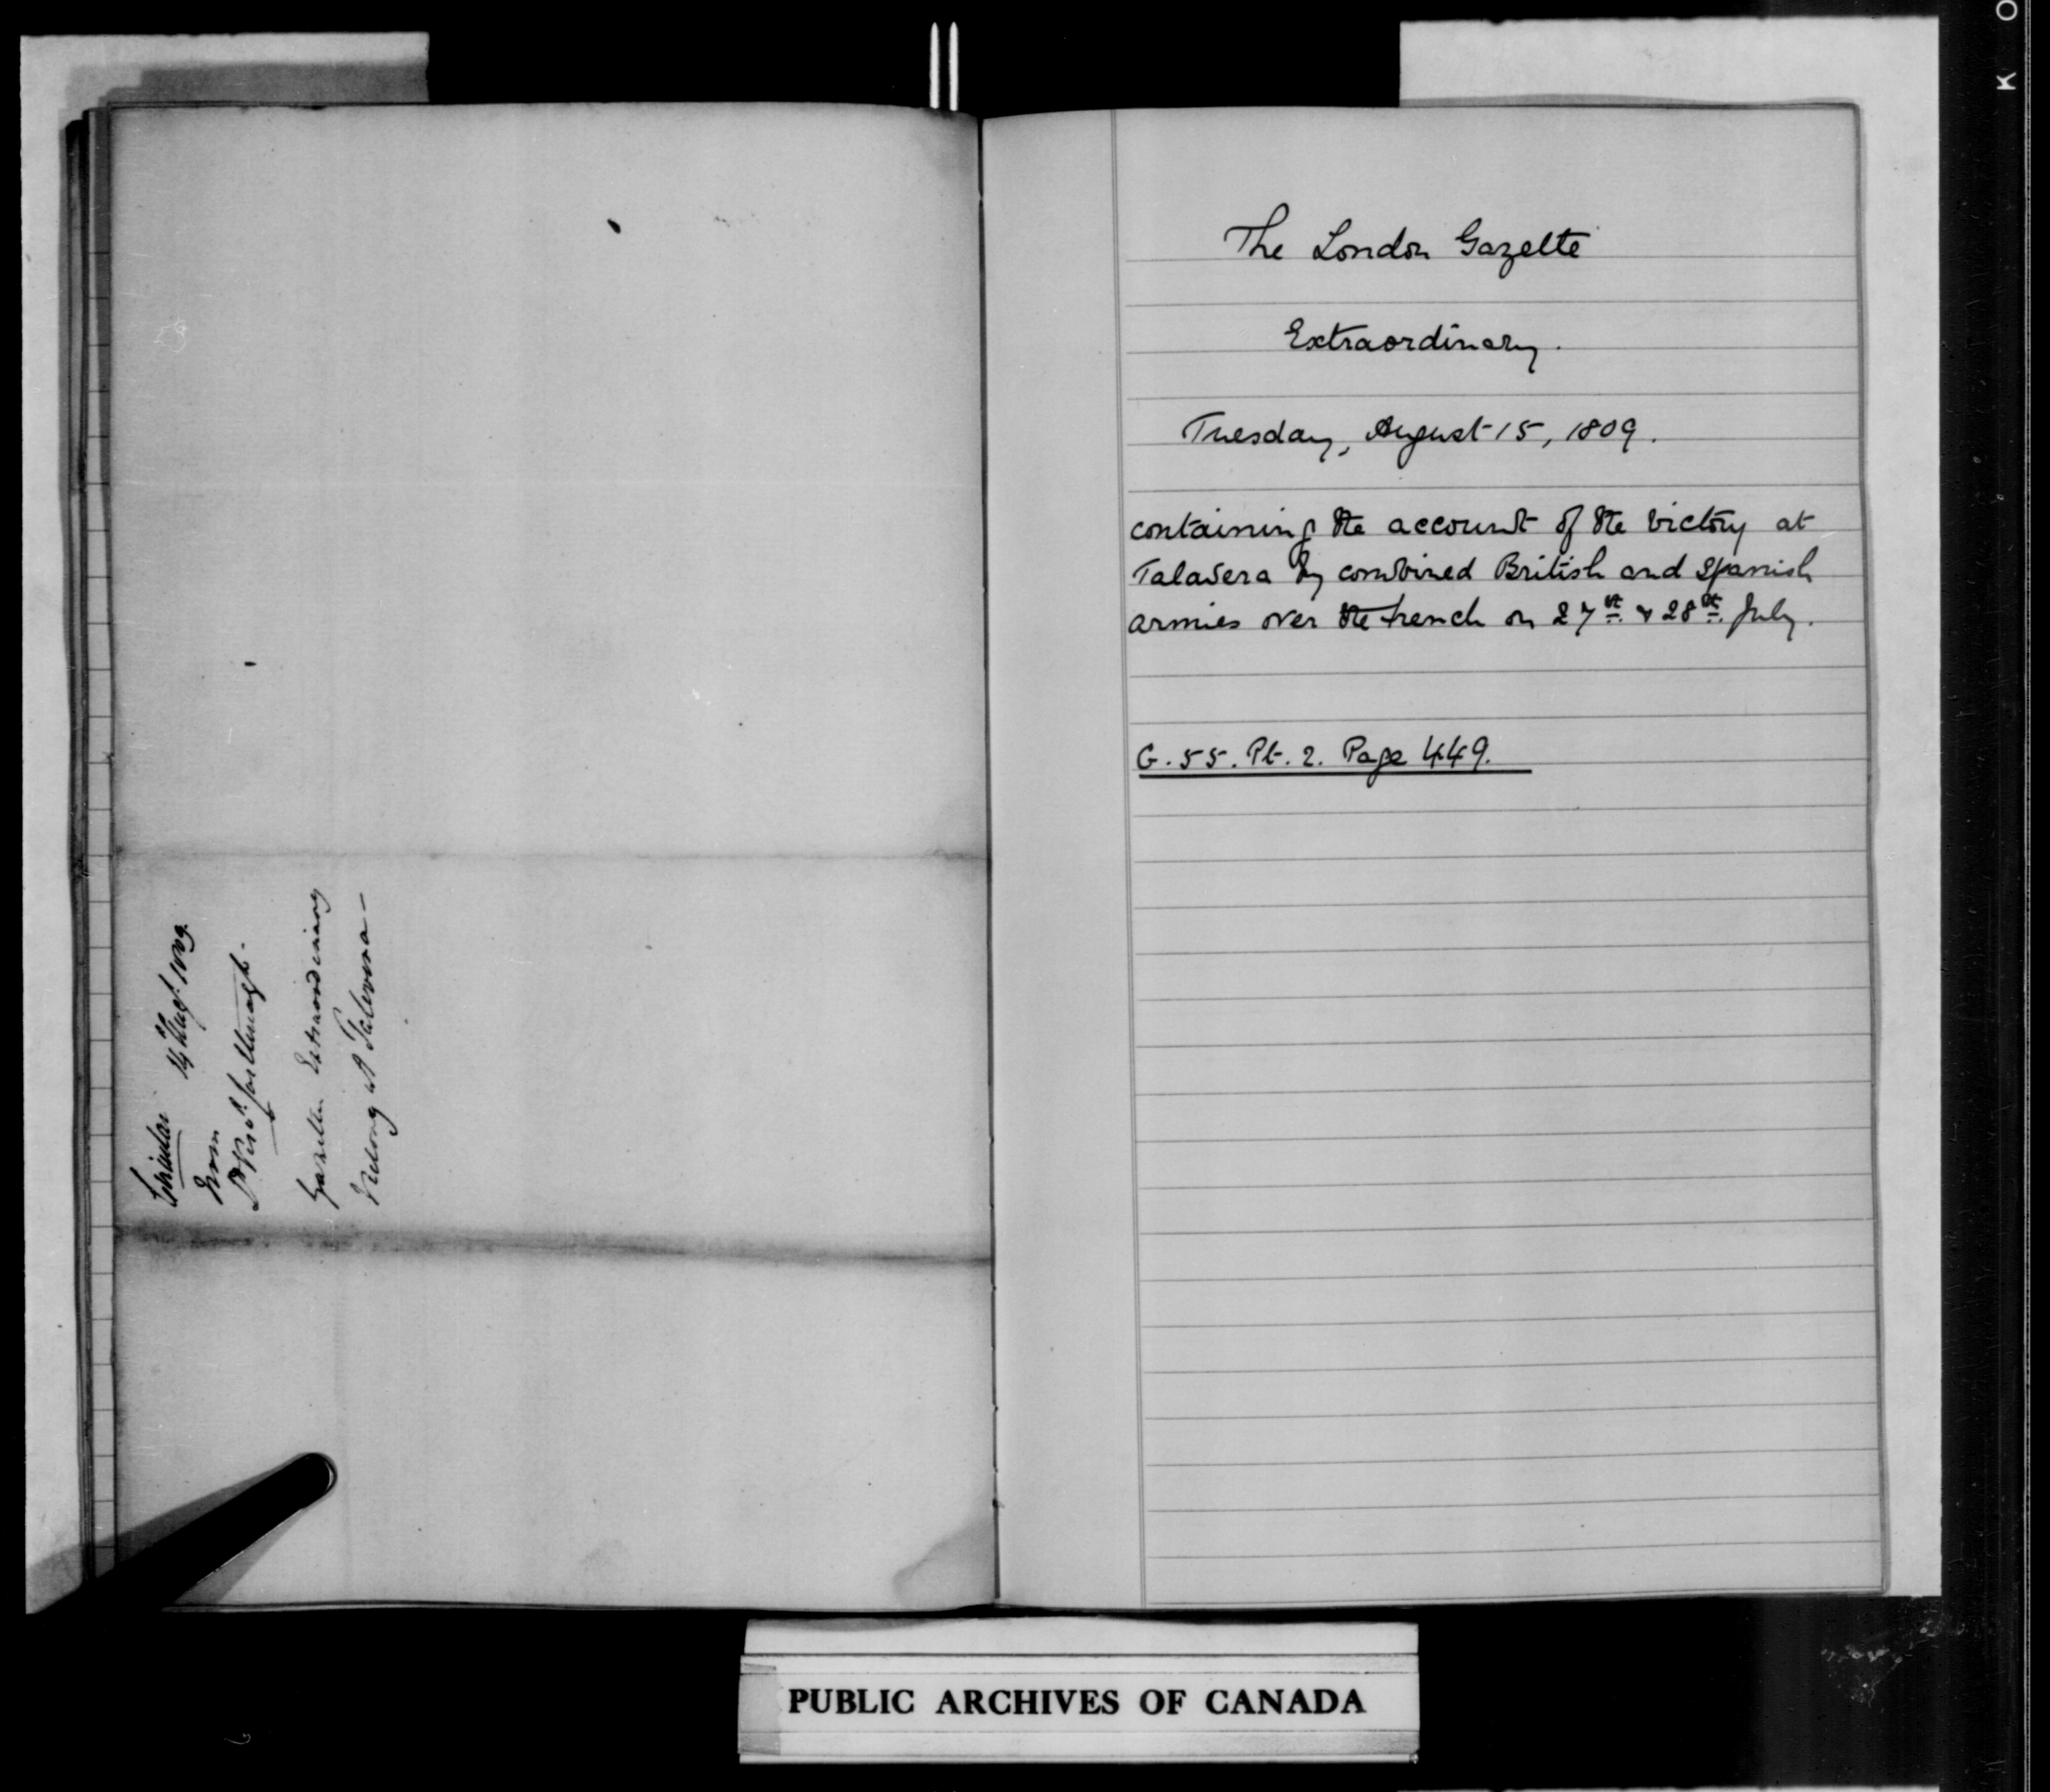 Circular 14th Augt. 1809.
From
Ld. Visct. Castlereagh.
Gazette Extraordinary
Victory at Talavera -
The London Gazette
Extraordinary.
Tuesday, August 15, 1809.
containing the account of the victory at
Talavera by combined British and Spanish
armies over the French on 27th. & 28th. July.
G. 55. Pt. 2. Page 449.
PUBLIC ARCHIVES OF CANADA